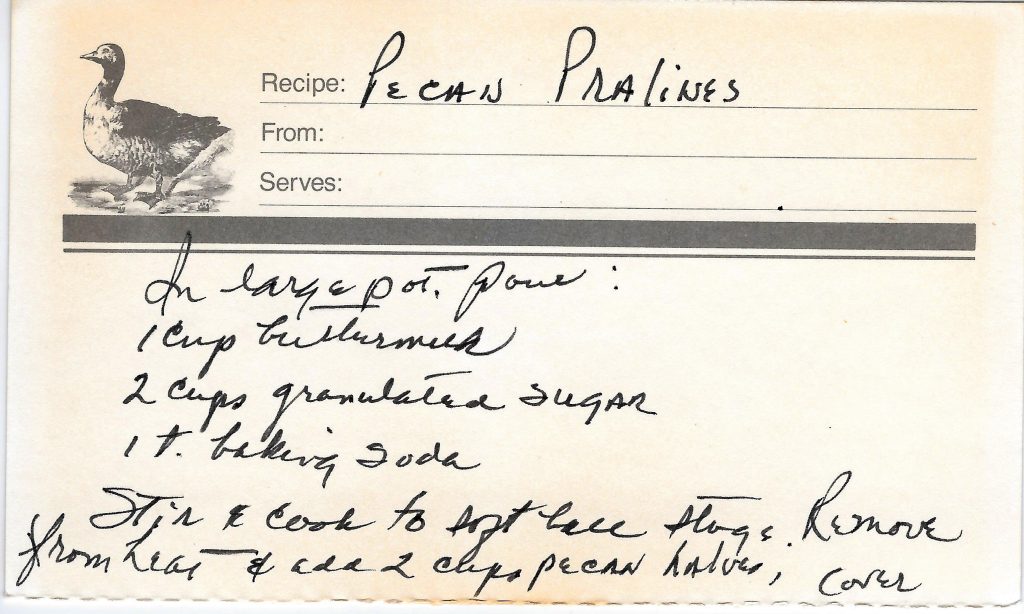 Recipe: Pecan Pralines
From:
Serves:
In large pot, pour :
1 cup buttermilk
2 cups granulated sugar
1 t. baking soda
Stir & cook to soft ball stage. Remove
from heat & add 2 cups pecan halves,
cover